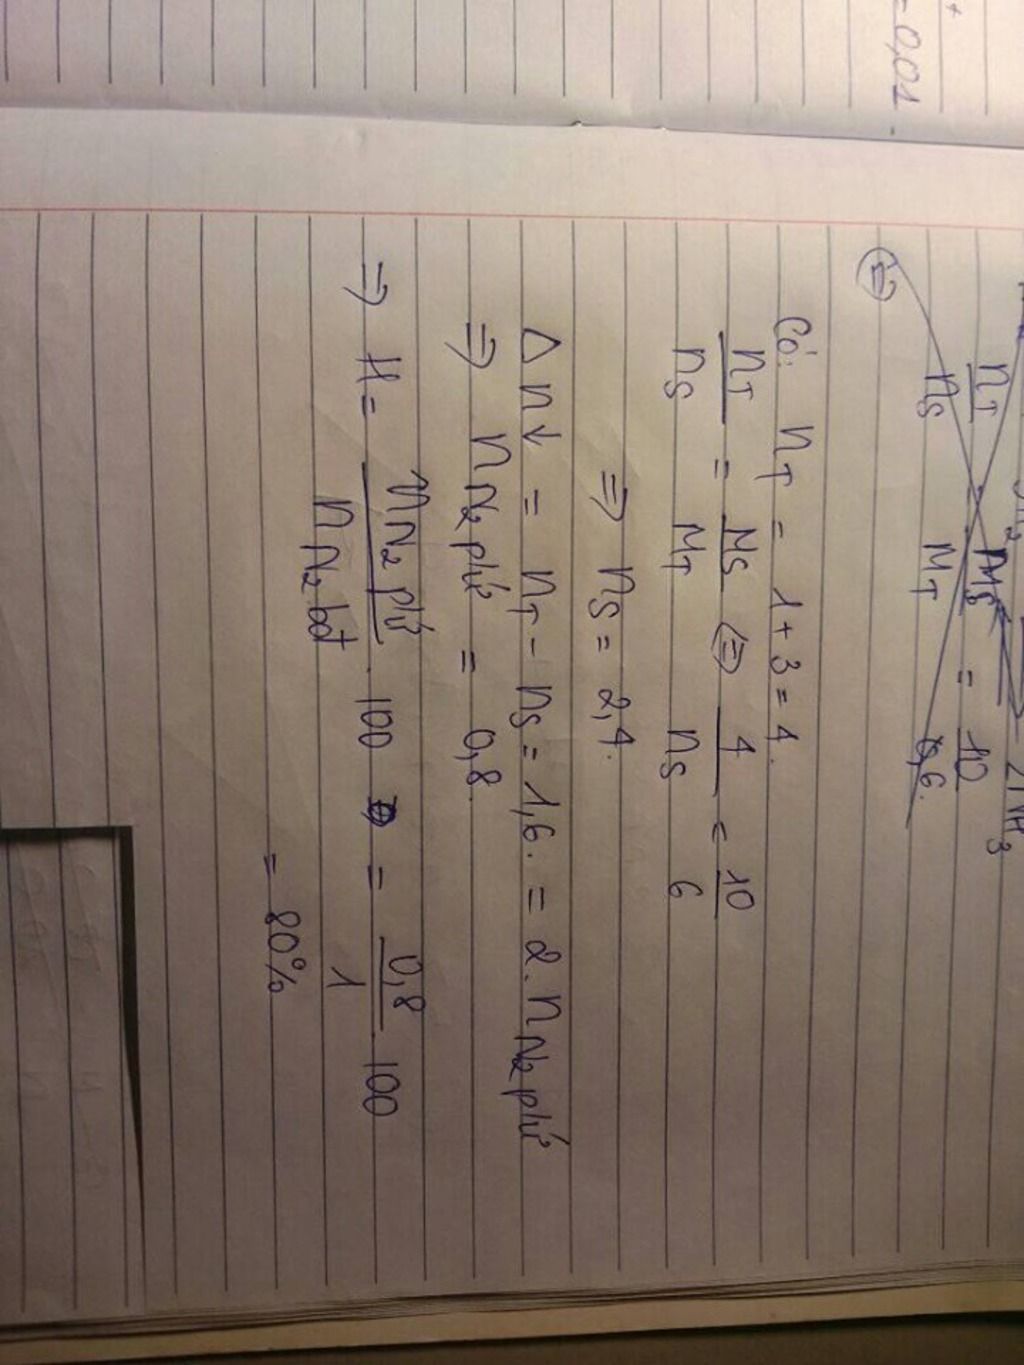 = 0,01
2NH₃
n_T / n_S = M_S / M_T = 10 / 0,6.
⇔
Có: n_T = 1 + 3 = 4.
n_T / n_S = M_S / M_T ⇔ 4 / n_S = 10 / 6
⇒ n_S = 2,4.
Δn↓ = n_T - n_S = 1,6. = 2. n_N₂ pứ
⇒ n_N₂ pứ = 0,8.
⇒ H = n_N₂ pứ / n_N₂ bđ . 100 = 0,8 / 1 . 100
= 80%